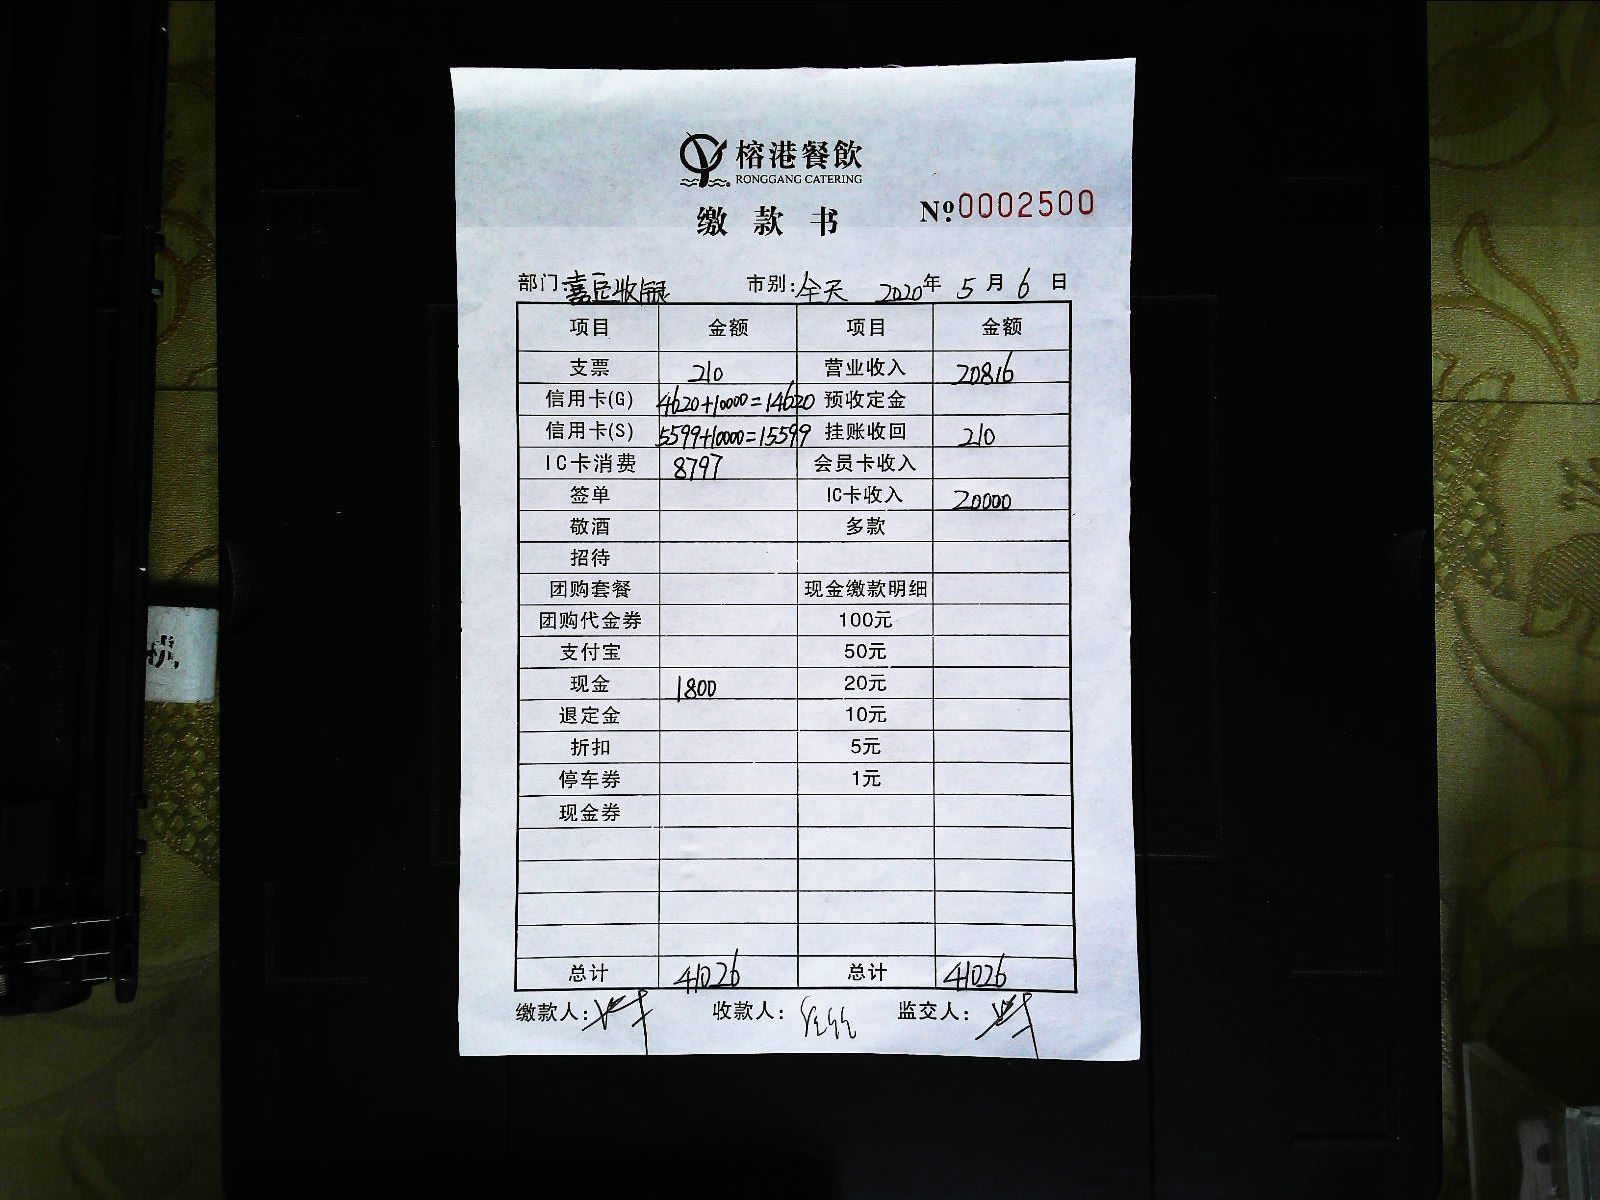 榕港餐飲
RONGGANG CATERING
缴款书 №0002500
部门:嘉臣收银 市别:全天 2020年5月6日
项目 金额 项目 金额
支票 210 营业收入 20816
信用卡(G) 4620+10000=14620 预收定金
信用卡(S) 5599+10000=15599 挂账收回 210
IC卡消费 8797 会员卡收入
签单 IC卡收入 20000
敬酒 多款
招待
团购套餐 现金缴款明细
团购代金券 100元
支付宝 50元
现金 1800 20元
退定金 10元
折扣 5元
停车券 1元
现金券
总计 41026 总计 41026
缴款人: 收款人: 监交人: